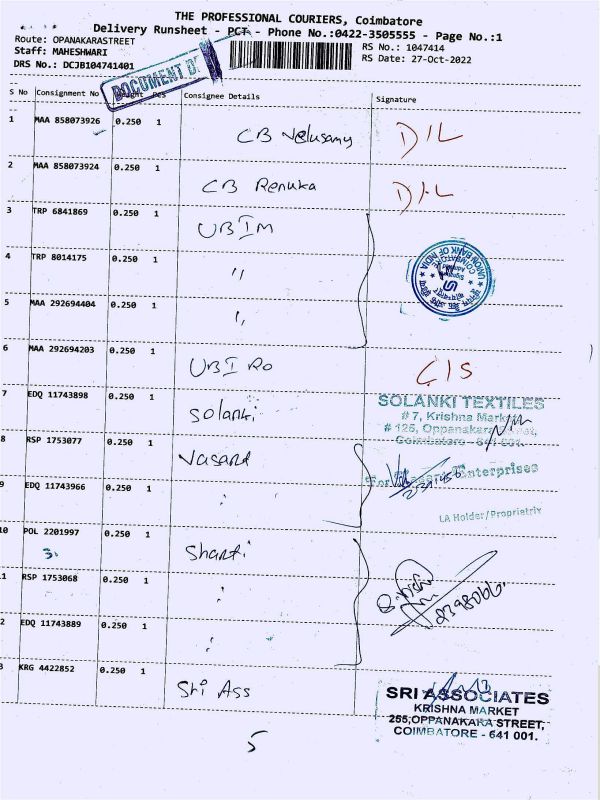 THE PROFESSIONAL COURIERS, Coimbatore
Delivery Runsheet - PCT - Phone No.:0422-3505555 - Page No.:1
Route: OPANAKARASTREET
RS No.: 1047414
Staff: MAHESHWARI
RS Date: 27-Oct-2022
DRS No.: DCJB104741401
DOCUMENT
S No Consignment No Pcs Consignee Details Signature
1 MAA 858073926 0.250 1 CB Velusamy D/L
2 MAA 858073924 0.250 1 CB Renuka D/L
3 TRP 6841869 0.250 1 UBIM
4 TRP 8014175 0.250 1 "
UNION BANK OF INDIA
COIMBATORE
5 MAA 292694404 0.250 1 "
6 MAA 292694203 0.250 1 UBI RO C/S
7 EDQ 11743898 0.250 1 Solanki
SOLANKI TEXTILES
# 7, Krishna Market
# 126, Oppanakara
Coimbatore - 641 001.
8 RSP 1753077 0.250 1 Vasant
For Enterprises
9 EDQ 11743966 0.250 1 "
LA Holder/Proprietrix
10 POL 2201997 0.250 1 Shanti
3.
1 RSP 1753068 0.250 1 "
2 EDQ 11743889 0.250 1 "
3 KRG 4422852 0.250 1 Sri Ass
SRI ASSOCIATES
KRISHNA MARKET
255,OPPANAKARA STREET,
COIMBATORE - 641 001.
5